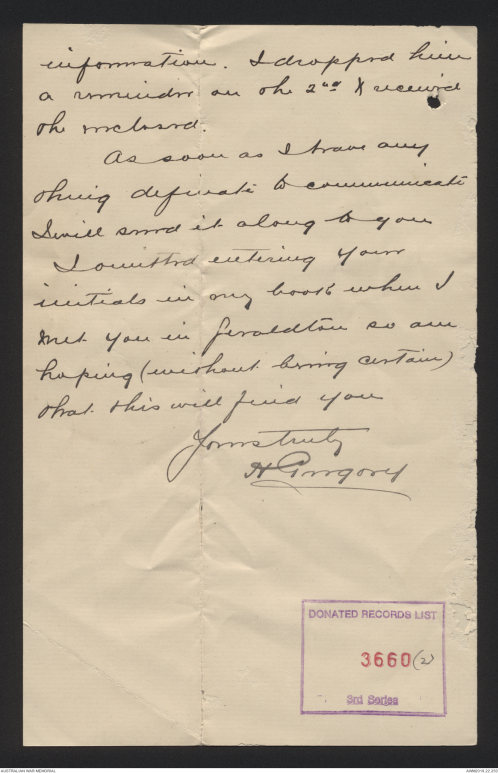 information. I dropped him
a reminder on the 2nd & received
the enclosed.
As soon as I have any
thing definate to communicate
I will send it along to you
I omitted entering your
initials in my book when I
met you in Geraldton so am
hoping (without being certain)
that this will find you
Yours truly
H Gregory
DONATED RECORDS LIST
3660 (2)
3rd Series
AUSTRALIAN WAR MEMORIAL